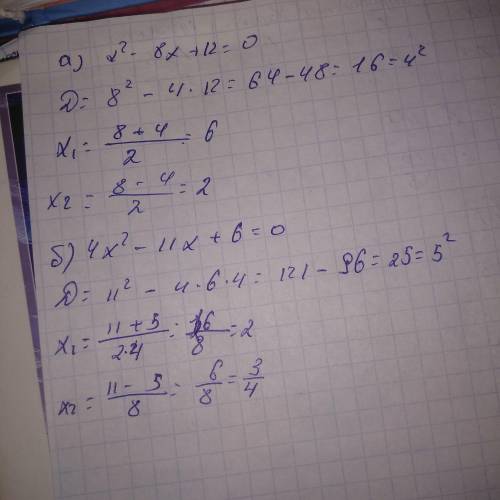 а) x² - 8x + 12 = 0
D = 8² - 4 · 12 = 64 - 48 = 16 = 4²
x₁ = (8 + 4)/2 = 6
x₂ = (8 - 4)/2 = 2
б) 4x² - 11x + 6 = 0
D = 11² - 4 · 6 · 4 = 121 - 96 = 25 = 5²
x₁ = (11 + 5)/(2·4) = 16/8 = 2
x₂ = (11 - 5)/8 = 6/8 = 3/4